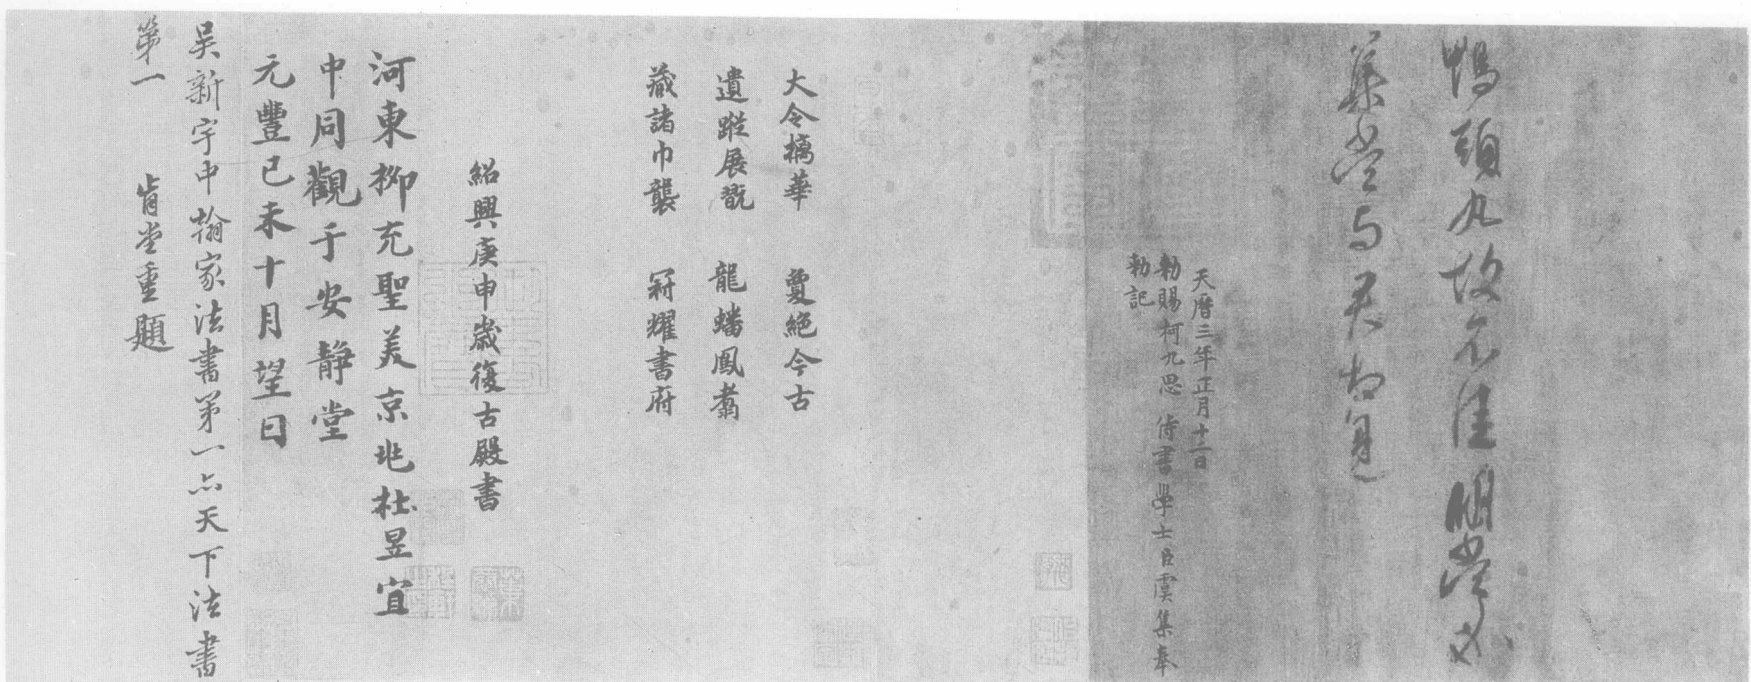 鴨頭丸故不佳明當必
集當与君相見
天曆三年正月十二日
勑賜柯九思 侍書學士臣虞集奉
勑記
大令摛華 夐絕今古
遺蹤展翫 龍蟠鳳翥
藏諸巾襲 冠耀書府
紹興庚申歲復古殿書
河東柳充聖美京兆杜昱宜
中同觀于安靜堂
元豐己未十月望日
吳新宇中翰家法書第一亦天下法書
第一 肯堂重題